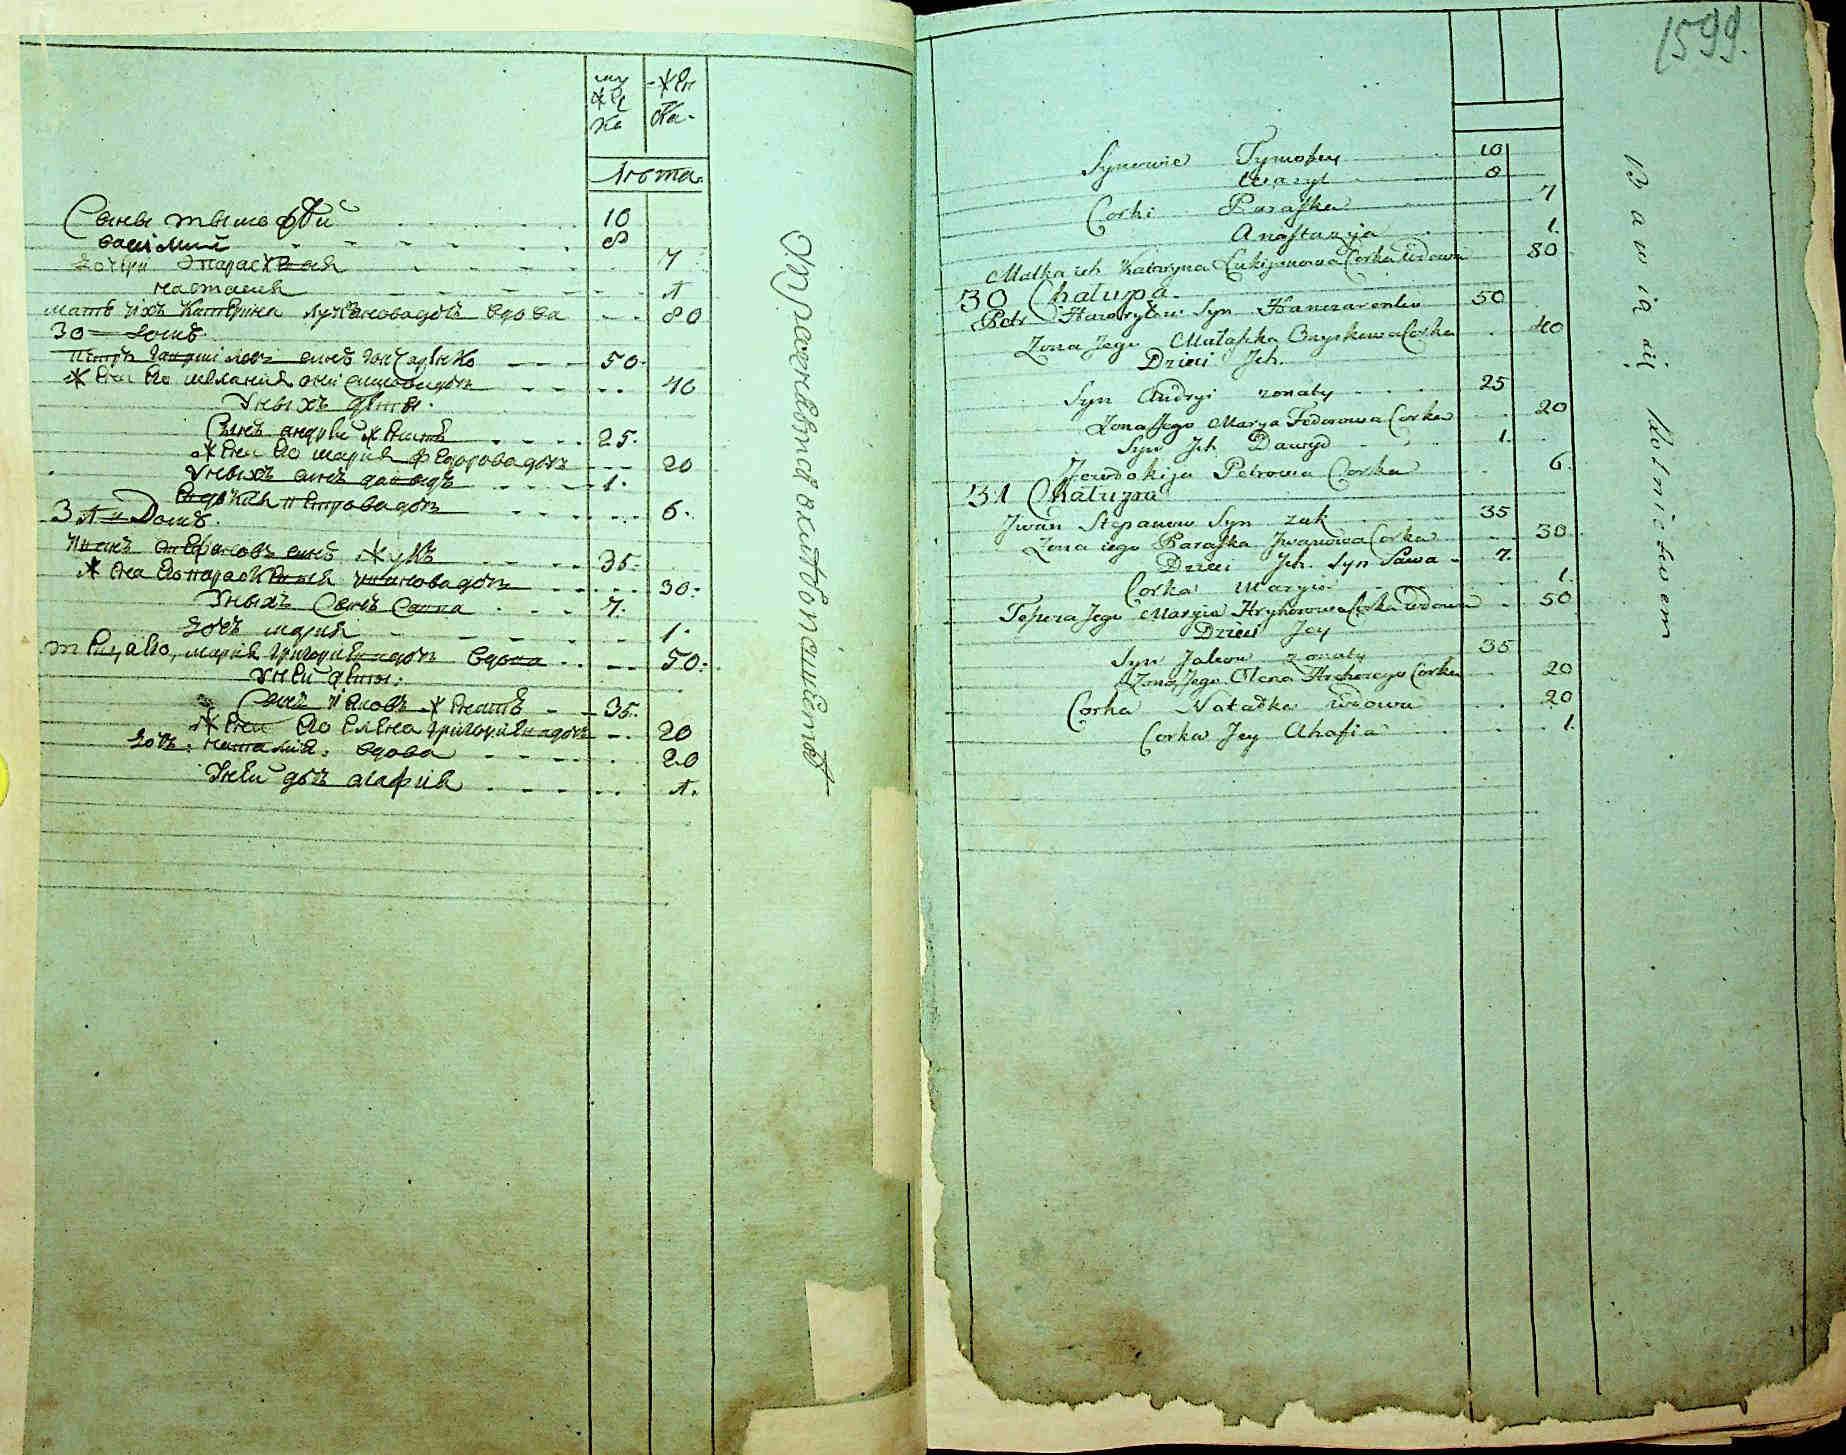 муж
еска
жен
ска
Лѣта
Сыны тымофѣй 10
василий 8
дочери Параскевия 7
настасия 1
мать ихъ Катерина лукяновадочь вдова 80
30 домъ
Петръ гавриловъ синъ гончаренко 50
жена его мелания онисимовадочь 40
У ных дѣти
Синъ андрей женатъ 25
жена его мария федоровадочь 20
У ныхъ синъ давидъ 1
евдокия петровадочь 6
31 Домъ
Иванъ синъ жукъ 35
жена его параскевия ивановадочь 30
У ныхъ синъ Савва 7
дочь мария 1
теща его, мария григориевадочь вдова 50
У ней дѣти
синъ Яковъ женатъ 35
жена его елена григориевадочь 20
дочь наталия вдова 20
У ней дочь агафия 1
Упражняются хлѣбопашествомъ
1599.
Synowie Tymofey 10
Wazyl 8
Corki Paraska 7
Anastazyia 1.
Matka ich Kataryna Lukijanowa Corka wdowa 80
30 Chalupa
Petr Hawryłow Syn Hanczarenko 50
Zona Jego Małaszka Onyskowa Corka 40
Dzieci Jch
Syn Andryi zonaty 25
Zona Jego Marya Fedorowa Corka 20
Syn Jch Dawyd 1.
Jewdokija Petrowa Corka 6.
31 Chalupa
Jwan Stepanow Syn zuk 35
Zona iego Paraska Jwanowa Corka 30
Dzieci Jch Syn Sawa 7.
Corka Maryia 1.
Teszcza Jego Maryia Hryhorowa Corka wdowa 50
Dzieci Jey
Syn Jakow zonaty 35
Zona Jego Olena Hrehorego Corka 20
Corka Natałka wdowa 20
Corka Jey Ahafia 1.
Bawią się Rolnictwem